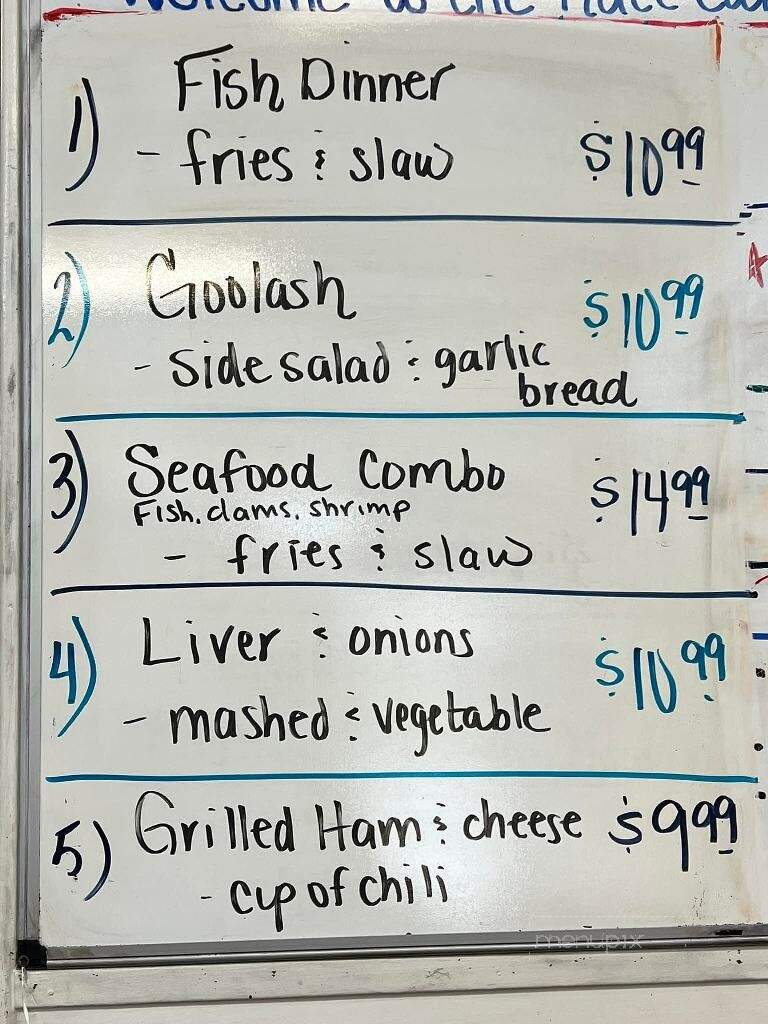 Welcome to the
1) Fish Dinner
- fries & slaw $10.99
2) Goolash $10.99
- side salad & garlic
bread
3) Seafood Combo $14.99
Fish, clams, shrimp
- fries & slaw
4) Liver & onions $10.99
- mashed & vegetable
5) Grilled Ham & cheese $9.99
- cup of chili
menupix